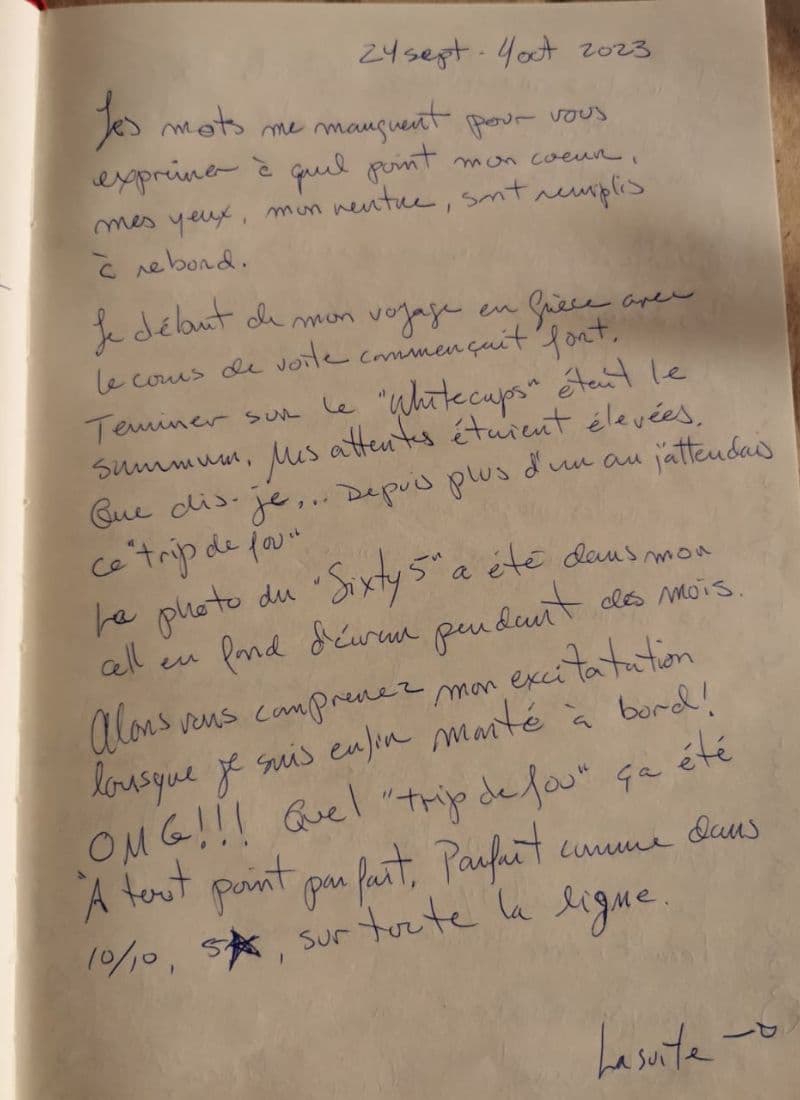 24 sept - 4 oct 2023
Les mots me manquent pour vous
exprimer à quel point mon coeur,
mes yeux, mon ventre, sont remplis
à rebord.
Le début de mon voyage en Grèce avec
le cours de voile commençait fort.
Terminer sur le "Whitecaps" était le
summum. Mes attentes étaient élevées.
Que dis-je... Depuis plus d'un an j'attendais
ce "trip de fou"
La photo du "Sixty 5" a été dans mon
cell en fond d'écran pendant des mois.
Alors vous comprenez mon excitatation
lorsque je suis enfin monté à bord!
OMG!!! Quel "trip de fou" ça été
À tout point parfait. Parfait comme dans
10/10, 5★, sur toute la ligne.
La suite →